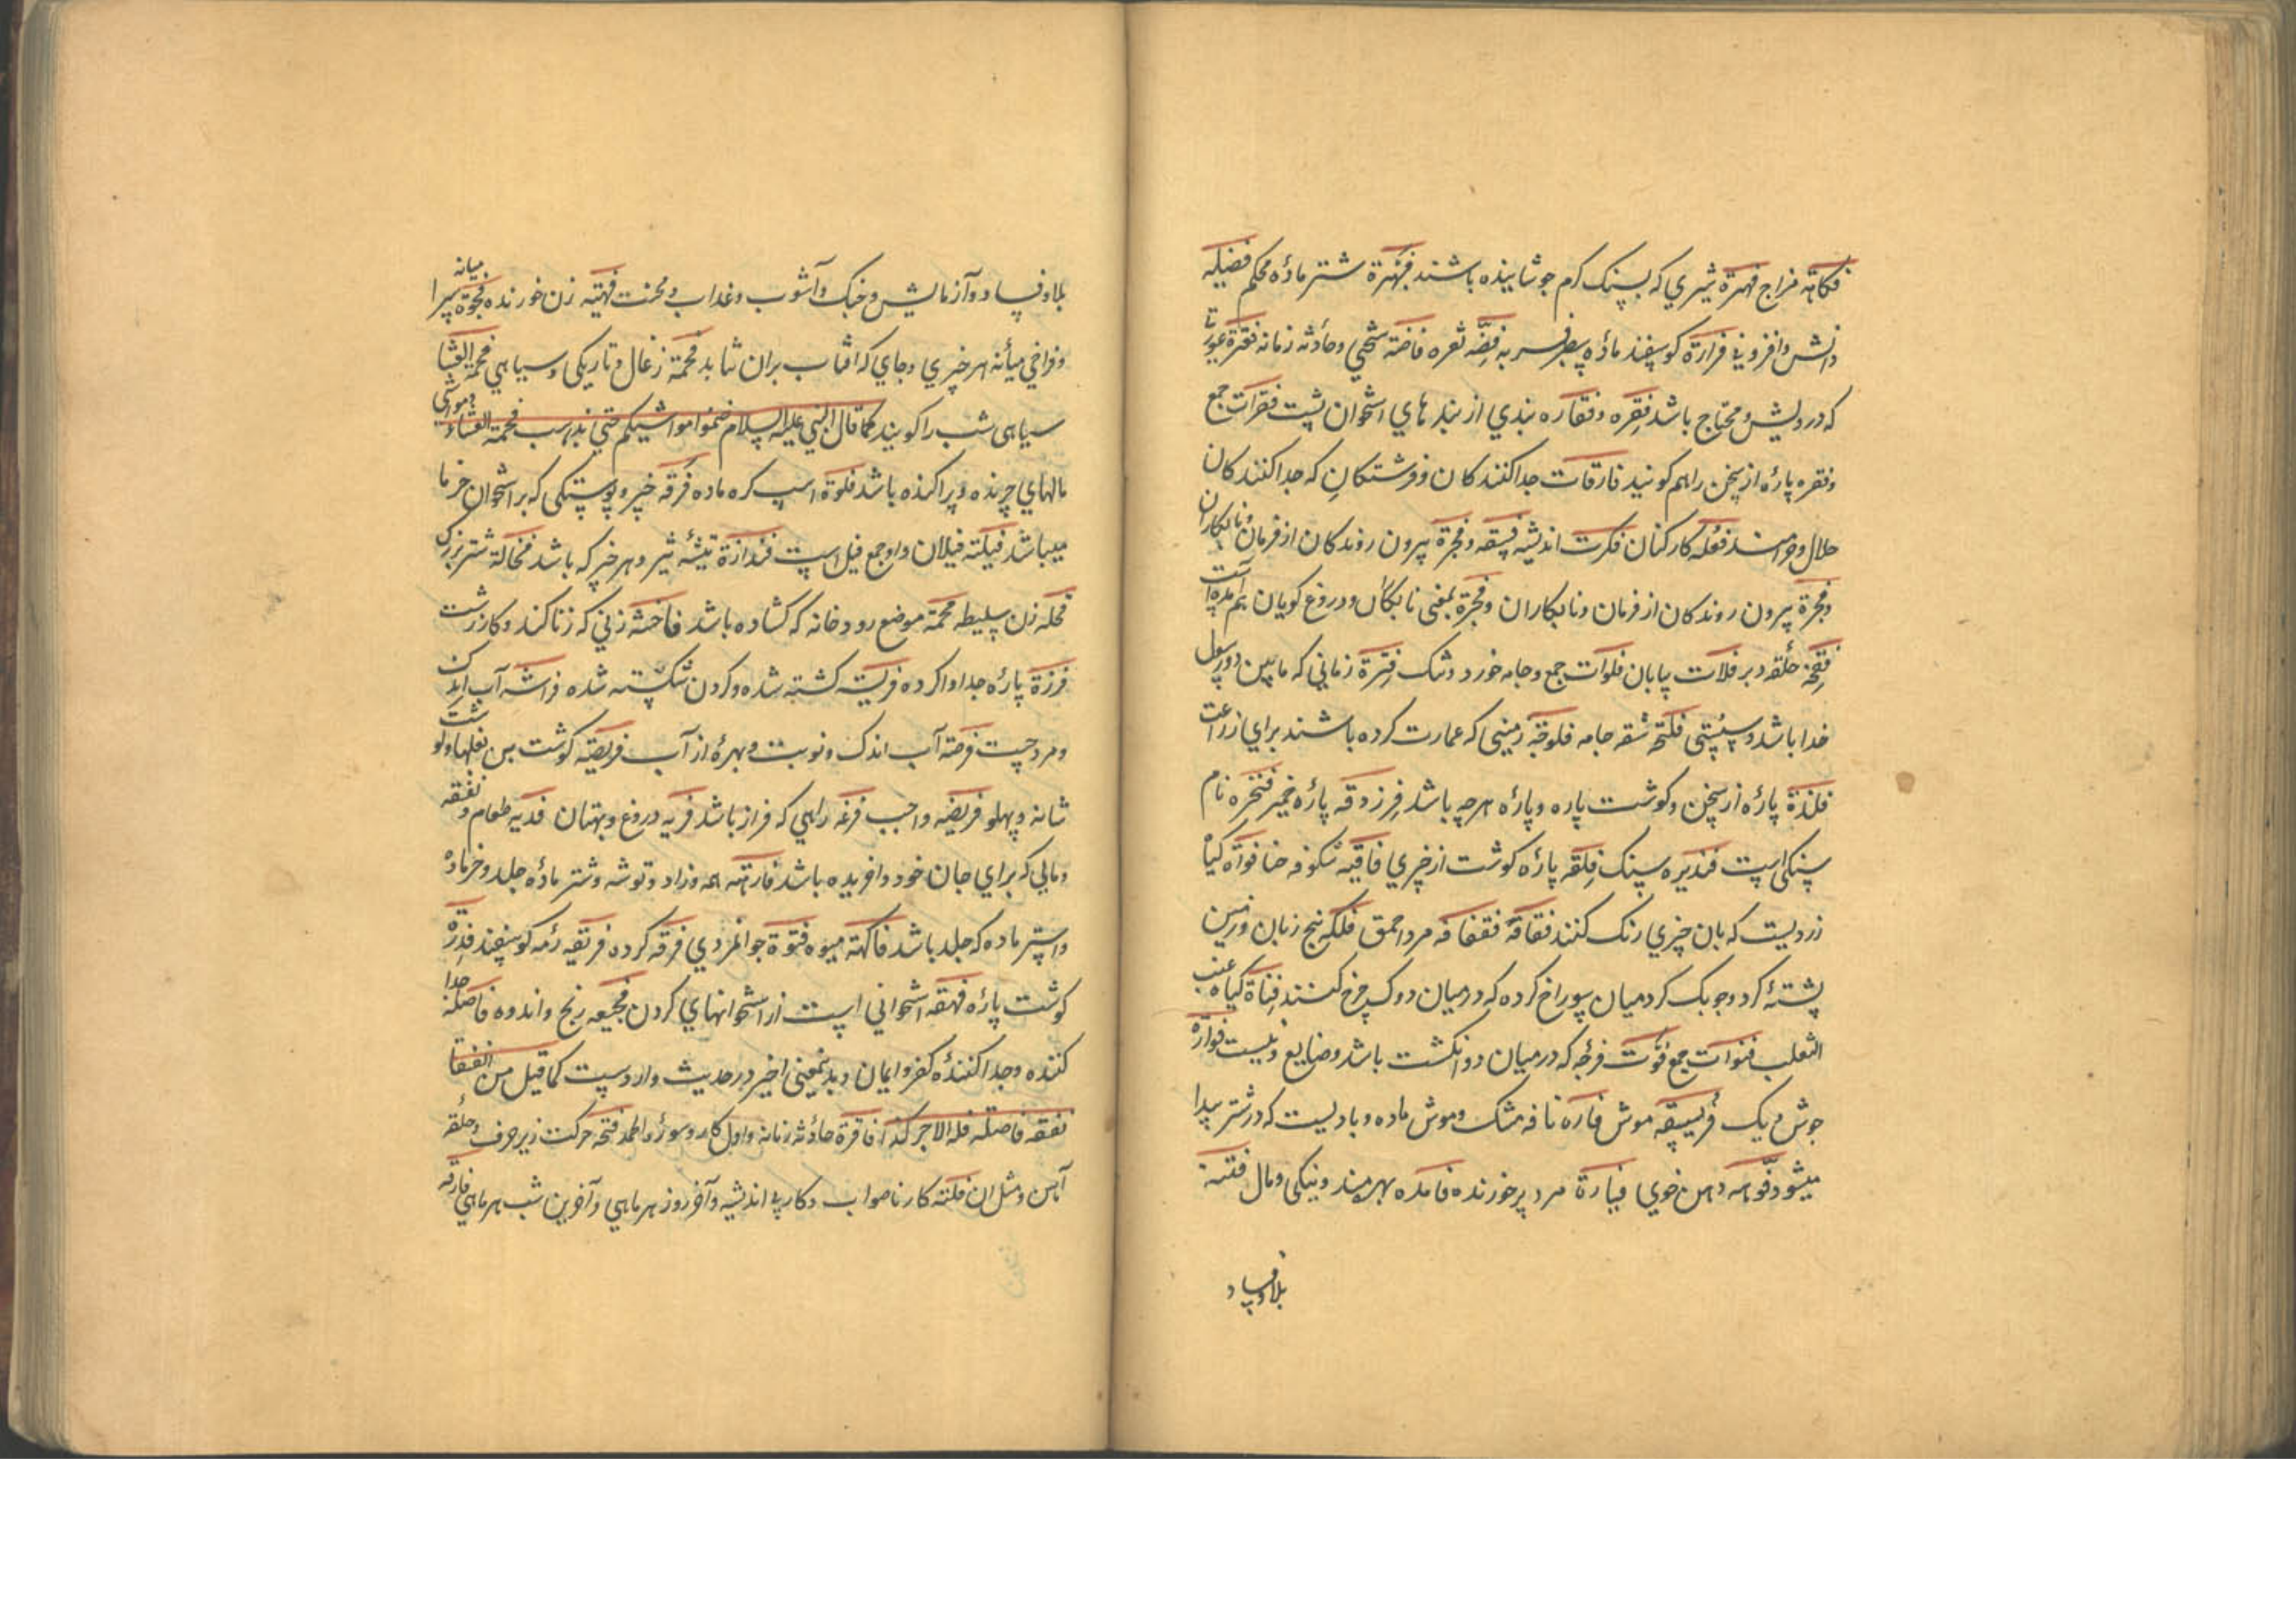 فکاهة مزاج فهرة شیري که بسنک کرم جوشانیده باشند فهرة شتر مادۀ محکم فضیله
دانش وافزونی فزارة کوسفند مادۀ فضه نقره فاضة سختی وحادثه زمانه فقرة
که درویش ومحتاج باشد فقره وفقاره بندي از بندهاي استخوان پشت فقرات جمع
وفقره پارۀ از سخن راهم کویند فارقات جدا کنندکان وفرشتکانِ که جدا کنندکان
حلال وحرامند فعله کارکنان فکرت اندیشه فسقه وفجرة بیرون روندکان از فرمان ونابکاران
وفجرة بیرون روندکان از فرمان ونابکاران وفجرة بمعنی نابکاران ودروغ کویان هم آمده است
فتخة حلقه در فلات بیابان فلوات جمع وجامه خورد وتنک فترة زمانی که مابین دو رسول
خدا باشد وسستی فلتحه شقه جامه فلوجة زمینی که عمارت کرده باشند براي زراعت
فلذة پارۀ از سخن وکوشت پاره وپارۀ هرچه باشد فرزدقه پارۀ خمیر فتخره نام
سنکی است فندیره سنک فلقه پارۀ کوشت از چیزي فاقیه شکوفه حنا فواة کیاه
زردیست که بان چیزي رنک کنند فقاقة فقفاقه مرد احمق فلکه بیخ زبان وزمین
پشتۀ کرد وچوبک کرد میان سوراخ کرده که درمیان دوک چرخ کنند فناة کیاه عنب
الثعلب فنوات جمع فوت فرجه که درمیان دو انکشت باشد وضایع ونیست فواره
جوش دیک فریسقه موش فاره نافه مشک وموش ماده وبادیست که در شتر پیدا
میشود فوامه دهن خوي فیارة مرد پرخورنده فامده بهره مند ونیکی ومال فتنه
بلا وفساد
بلا وفساد وآزمایش وجنک وآشوب وعذاب ومحنت فهته زن خورنده فجوة میانه سرا
وفراخي میانه هر چیزي وجاي که افتاب بران نتابد فحمة زغال وتاریکی وسیاهي فحمة العشا
سیاهی شب را کویند کما قال النبي علیه السلام ضموا مواشیکم حتی تذهب فحمة العشاء ومواشي
مالهاي چرنده وپراکنده باشد فلوة اسب کره ماده فرقه چیز وپوستکی که بر استخوان خرما
میباشد فیلته فیلان واو جمع فیل است فندازة تیشۀ تیز وهر چیز که باشد فخالة شتر بزرک
فحله زن سلیطه فحمة موضع رودخانه که کشاده باشد فاحشه زني که زنا کند وکار زشت
فرزة پارۀ جدا واکرده فریسة کشته شده وکردن شکسته شده فراشه آب اندک
ومرد چست فرصة آب اندک ونوبت وبهرۀ از آب فریصة کوشت بن بغلها وکوشت
شانه وپهلو فریضه واجب فرغه راهي که فراز باشد فریه دروغ وبهتان فدیه طعام ونفقه
ومالي که براي جان خود وا خریده باشد فارهة وزاد وتوشه وشتر مادۀ جلد وخر ماده
واستر ماده که جلد باشد فاکهة میوه فتوة جوانمردي فرقه کروه فریقه رمه کوسفند فدرة
کوشت پارۀ فهقه استخوانی است از استخوانهاي کردن فجیعه رنج واندوه فاصلة جدا
کننده وجدا کنندۀ کفر وایمان وبدینمعنی اخیر در حدیث وارد است کما قیل من انفق
نفقة فاصلة فله الاجر کذا فاقرة حادثه زمانه واول کار وسورۀ الحمد فتحه حرکت زبر حرف وحلقه
آهن ومثل ان فلتة کار ناصواب وکار بی اندیشه وآخر روز هر ماهي وآخرین شب هر ماهي فارقه